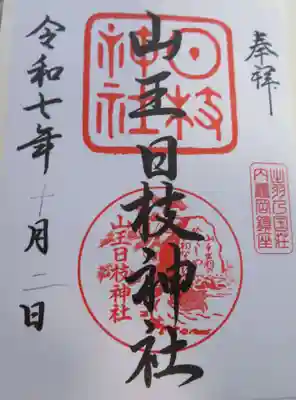 奉拝
出羽乃国荘
内龜岡鎮座
山王日枝神社
日枝
神社
山王日枝神社
令和七年十月二日